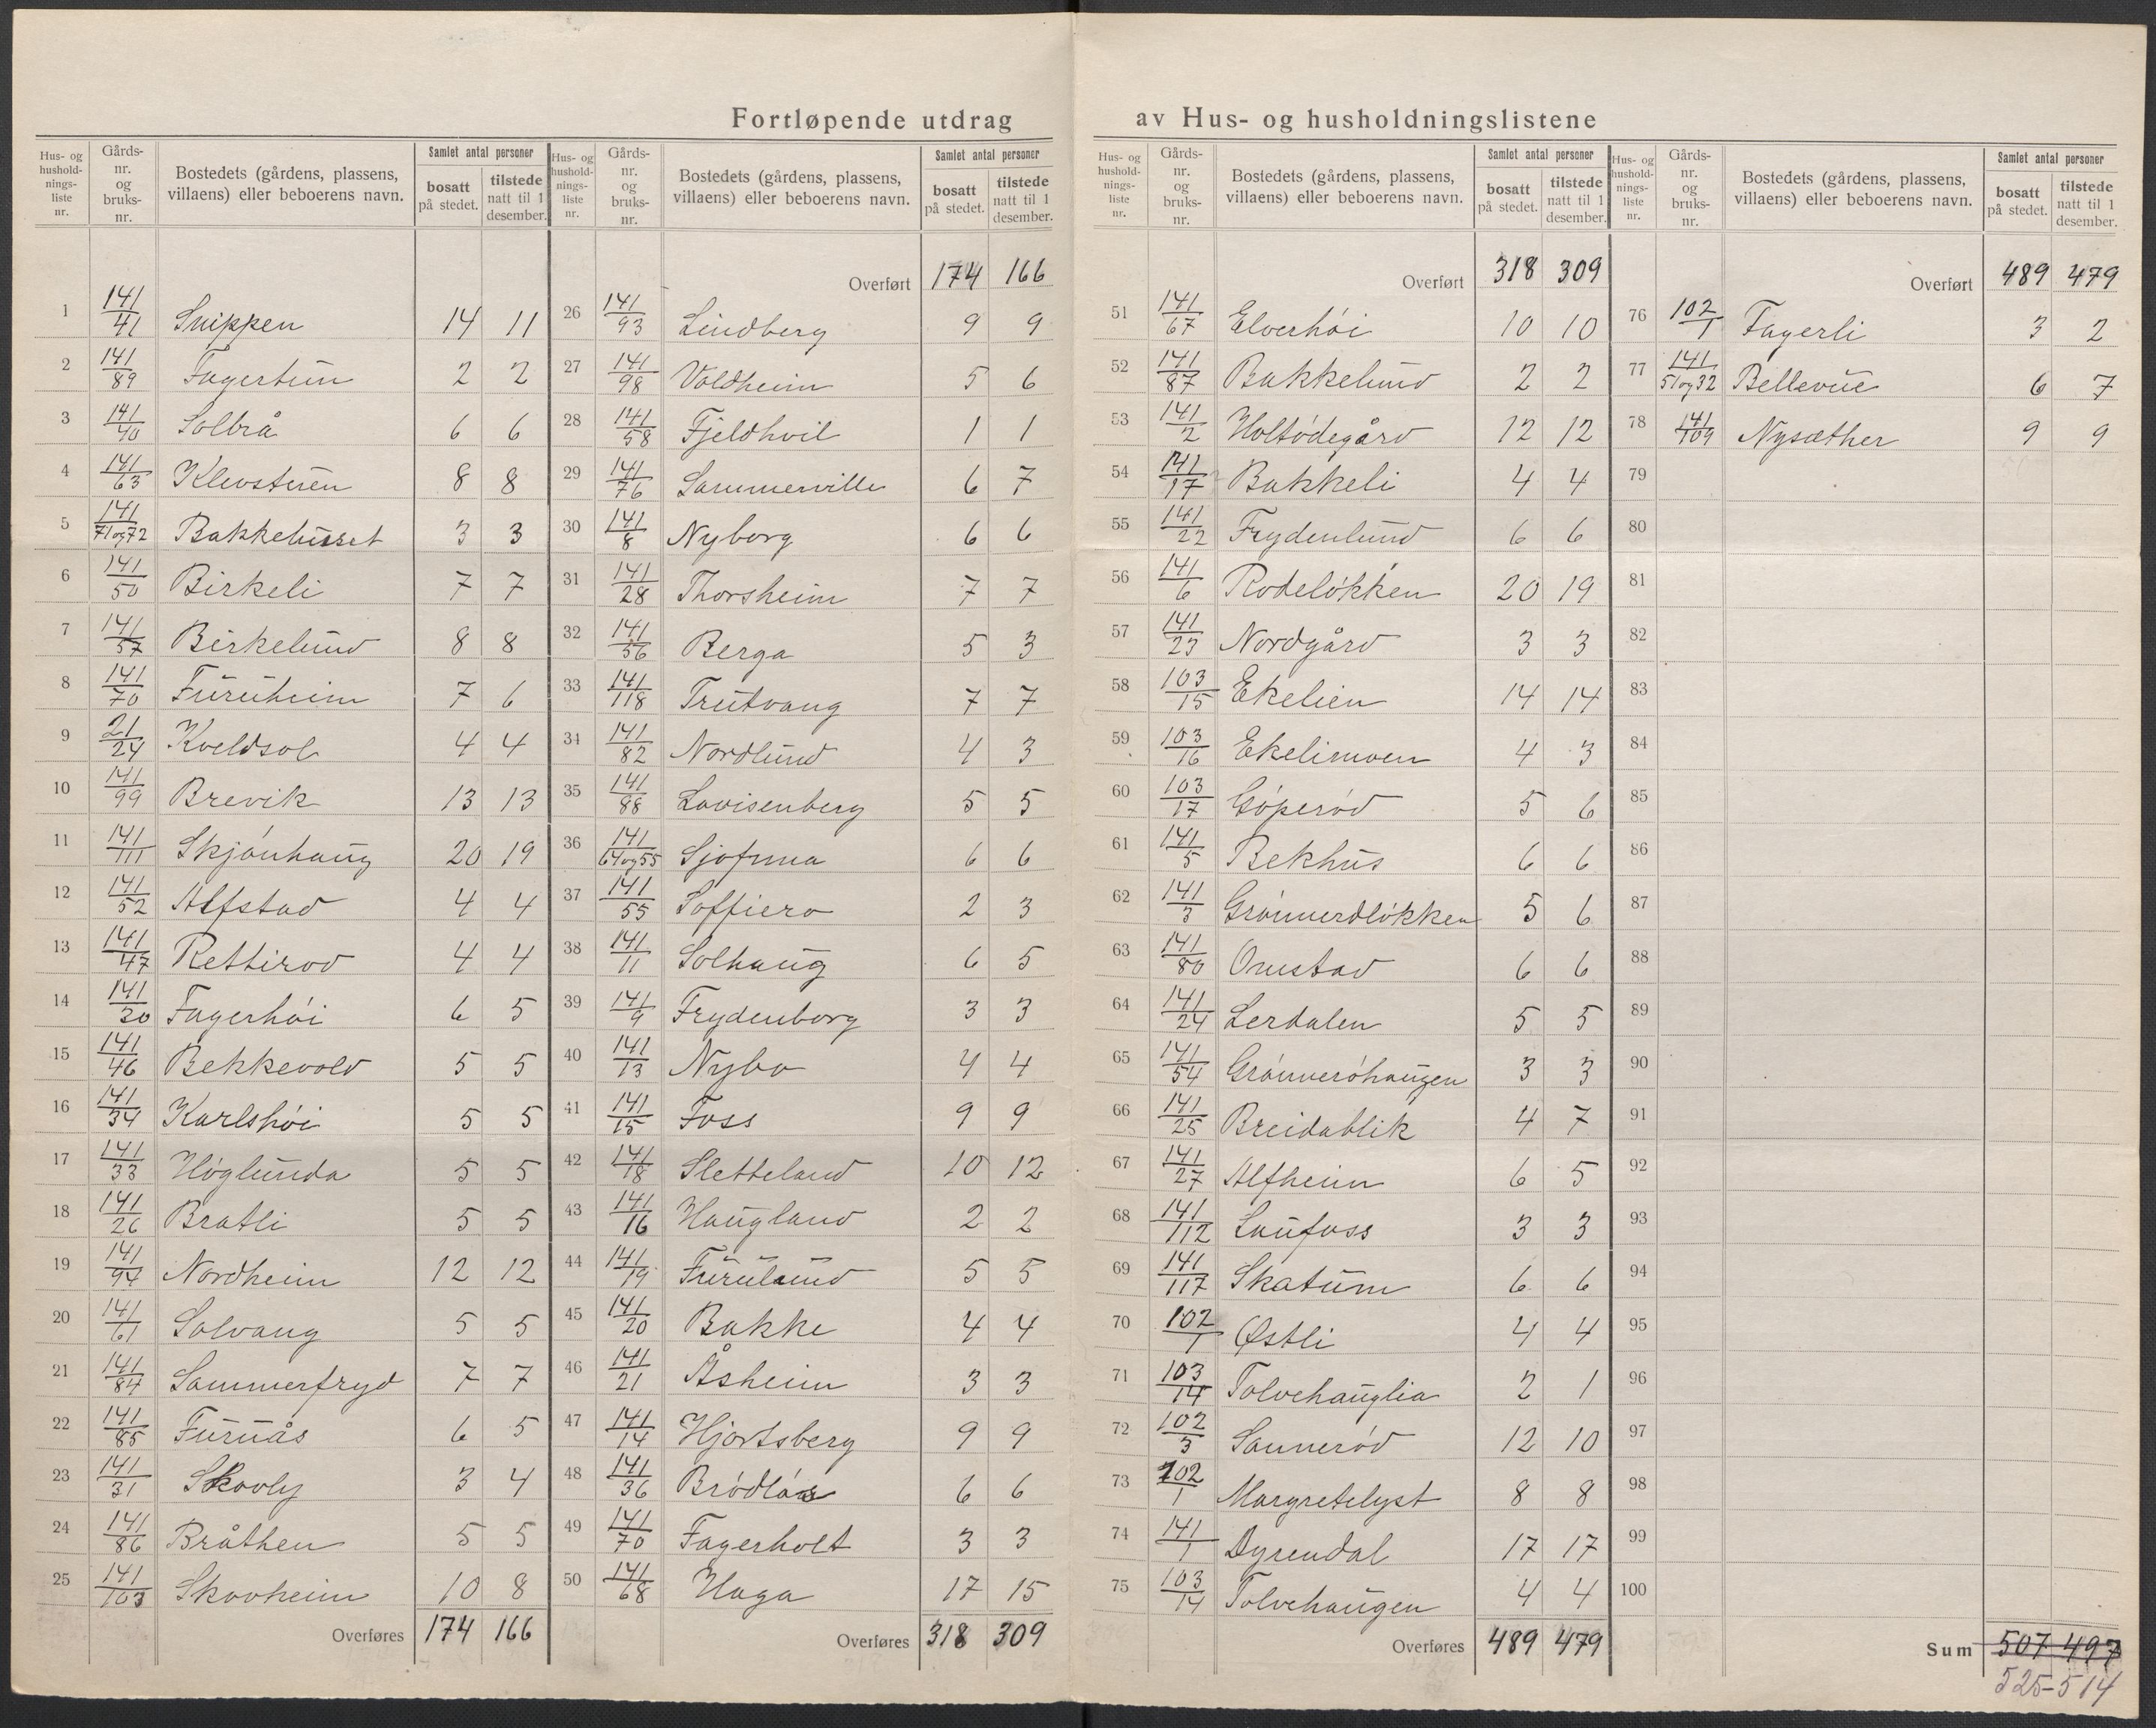 Fortløpende utdrag av Hus- og husholdningslistene
Hus- og husholdningsliste nr. | Gårdsnr. og bruksnr. | Bostedets (gårdens, plassens, villaens) eller beboerens navn. | Samlet antal personer bosatt på stedet. | tilstede natt til 1 desember.
1 141/41 Snippen 14 11
2 141/89 Fagertun 2 2
3 141/40 Solbrå 6 6
4 141/63 Klevstuen 8 8
5 141/71 og 72 Bakkehusset 3 3
6 141/50 Birkeli 7 7
7 141/57 Birkelund 8 8
8 141/70 Furuheim 7 6
9 21/24 Kveldsol 4 4
10 141/99 Brevik 13 13
11 141/111 Skjønhaug 20 19
12 141/52 Alfstad 4 4
13 141/47 Rettirod 4 4
14 141/30 Fagerhøi 6 5
15 141/46 Bekkevold 5 5
16 141/34 Karlshøi 5 5
17 141/33 Høglunda 5 5
18 141/26 Bratli 5 5
19 141/94 Nordheim 12 12
20 141/61 Solvang 5 5
21 141/84 Sommerfryd 7 7
22 141/85 Furuås 6 5
23 141/31 Skovly 3 4
24 141/86 Bråthen 5 5
25 141/103 Skovheim 10 8
Overføres 174 166
Hus- og husholdningsliste nr. | Gårdsnr. og bruksnr. | Bostedets (gårdens, plassens, villaens) eller beboerens navn. | Samlet antal personer bosatt på stedet. | tilstede natt til 1 desember.
Overført 174 166
26 141/93 Lindberg 9 9
27 141/98 Voldheim 5 6
28 141/58 Fjeldhvil 1 1
29 141/76 Sommerville 6 7
30 141/8 Nyborg 6 6
31 141/28 Thorsheim 7 7
32 141/56 Berga 5 3
33 141/118 Trutvang 7 7
34 141/82 Nordlund 4 3
35 141/88 Lovisenberg 5 5
36 141/64 og 55 Sjofnna 6 6
37 141/55 Soffiero 2 3
38 141/11 Solhaug 6 5
39 141/9 Frydenborg 3 3
40 141/13 Nybo 4 4
41 141/15 Foss 9 9
42 141/18 Sletteland 10 12
43 141/16 Haugland 2 2
44 141/19 Furulund 5 5
45 141/20 Bakke 4 4
46 141/21 Åsheim 3 3
47 141/14 Hjortsberg 9 9
48 141/36 Brødløs 6 6
49 141/70 Fagerholt 3 3
50 141/68 Haga 17 15
Overføres 318 309
Hus- og husholdningsliste nr. | Gårdsnr. og bruksnr. | Bostedets (gårdens, plassens, villaens) eller beboerens navn. | Samlet antal personer bosatt på stedet. | tilstede natt til 1 desember.
Overført 318 309
51 141/67 Elverhøi 10 10
52 141/87 Bakkelund 2 2
53 141/2 Holtødegård 12 12
54 141/17 Bakkeli 4 4
55 141/22 Frydenlund 6 6
56 141/6 Rodeløkken 20 19
57 141/23 Nordgård 3 3
58 103/15 Ekelien 14 14
59 103/16 Ekelimoen 4 3
60 103/17 Gøperød 5 6
61 141/5 Bekhus 6 6
62 141/3 Grønnerdløkken 5 6
63 141/80 Onestad 6 6
64 141/24 Lerdalen 5 5
65 141/54 Grønnerøhaugen 3 3
66 141/25 Breidablik 4 7
67 141/27 Alfheim 6 5
68 141/112 Laufoss 3 3
69 141/117 Skatum 6 6
70 102/1 Østli 4 4
71 103/14 Tolvehauglia 2 1
72 102/3 Sannerød 12 10
73 102/1 Margretelyst 8 8
74 141/1 Dyrendal 17 17
75 103/14 Tolvehaugen 4 4
Overføres 489 479
Hus- og husholdningsliste nr. | Gårdsnr. og bruksnr. | Bostedets (gårdens, plassens, villaens) eller beboerens navn. | Samlet antal personer bosatt på stedet. | tilstede natt til 1 desember.
Overført 489 479
76 102/1 Fagerli 3 2
77 141/51 og 32 Bellevue 6 7
78 141/109 Nysæther 9 9
79
80
81
82
83
84
85
86
87
88
89
90
91
92
93
94
95
96
97
98
99
100
Sum 507 497
525-514